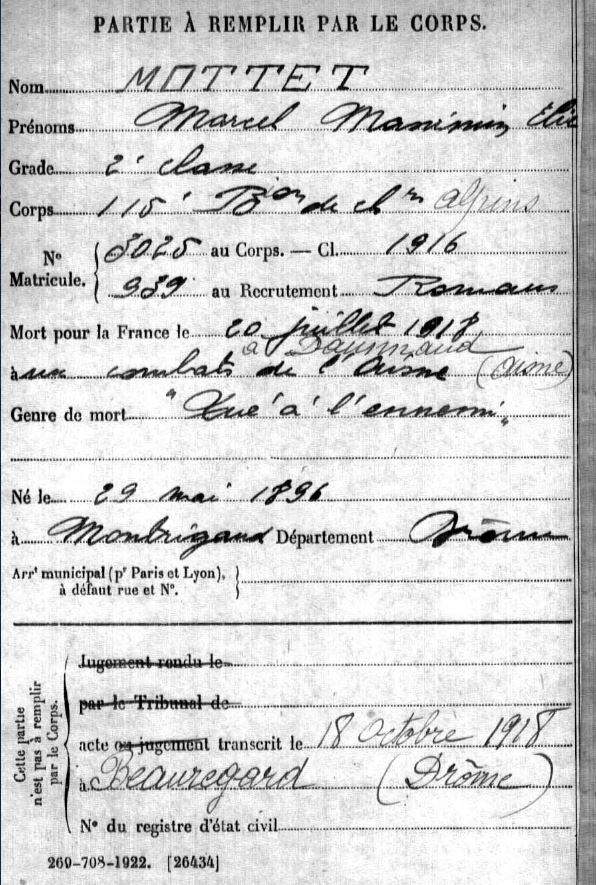 PARTIE À REMPLIR PAR LE CORPS.
Nom MOTTET
Prénoms Marcel Maximin Elie
Grade 2e classe
Corps 115e Bion de chrs alpins
No Matricule. 5025 au Corps. — Cl. 1916
939 au Recrutement Romans
Mort pour la France le 20 juillet 1918
à
aux combats de l'Aisne (Aisne)
Genre de mort "Tué à l'ennemi"
Né le 29 mai 1896
à Montrigaud Département Drôme
Arrt municipal (pr Paris et Lyon),
à défaut rue et No.
Cette partie
n'est pas à remplir
par le Corps.
Jugement rendu le
par le Tribunal de
acte ou jugement transcrit le 18 Octobre 1918
à Beauregard (Drôme)
No du registre d'état civil
269-708-1922. [26434]